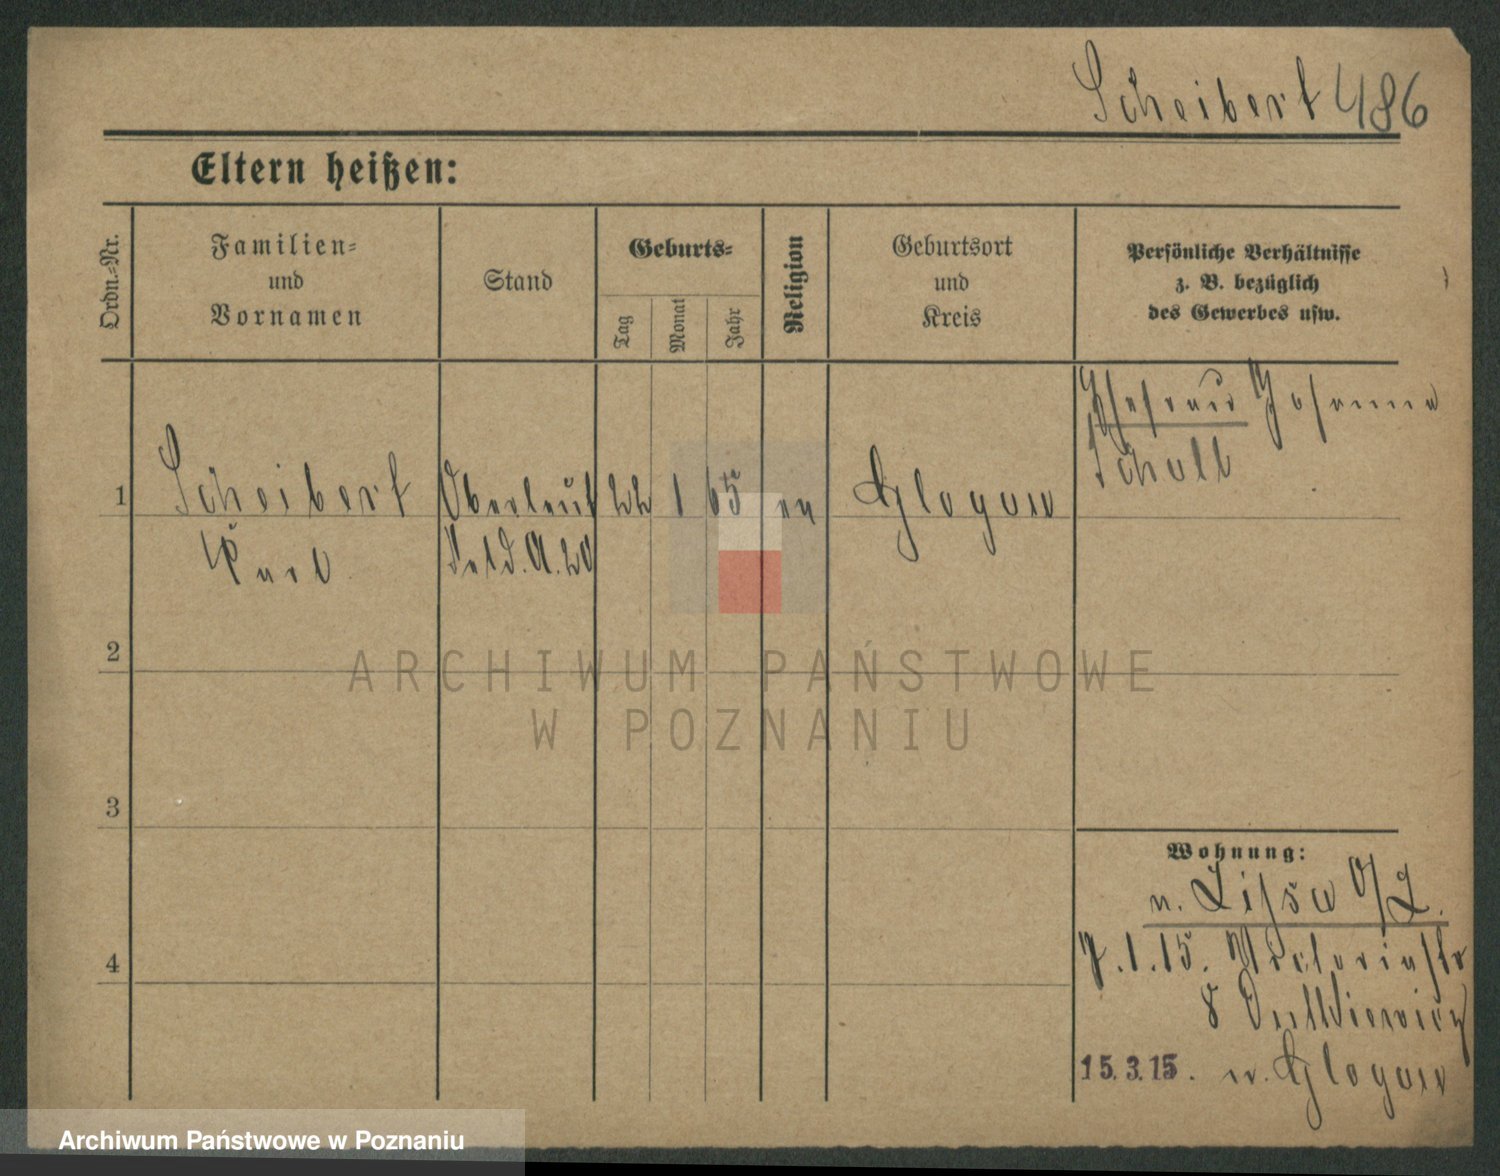 Scheibert 486
Eltern heißen:
Ordn.-Nr.
Familien-
und
Vornamen
Stand
Geburts-
Tag
Monat
Jahr
Religion
Geburtsort
und
Kreis
Persönliche Verhältnisse
z. B. bezüglich
des Gewerbes usw.
1
Scheibert
Karl
Oberleut
Feld. A. 20
22
1
65
ev
Glogau
Ehefrau Johanna
Scholl
2
3
4
Wohnung:
n. Lissa
7.1.15. Victoriastr
8
15.3.15. n. Glogau
ARCHIWUM PAŃSTWOWE
W POZNANIU
Archiwum Państwowe w Poznaniu